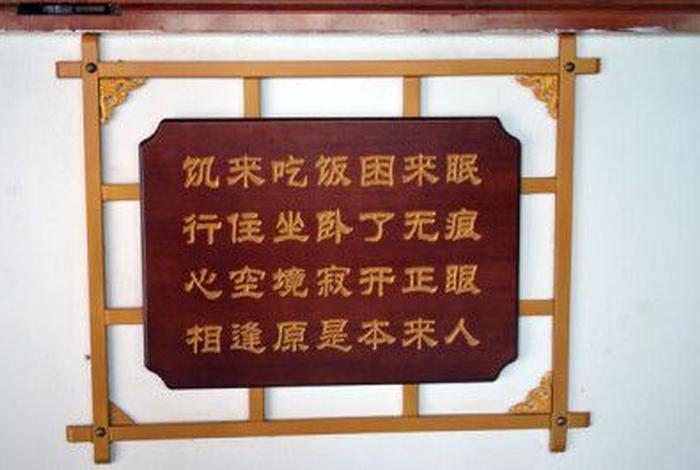 饥来吃饭困来眠
行住坐卧了无痕
心空境寂开正眼
相逢原是本来人